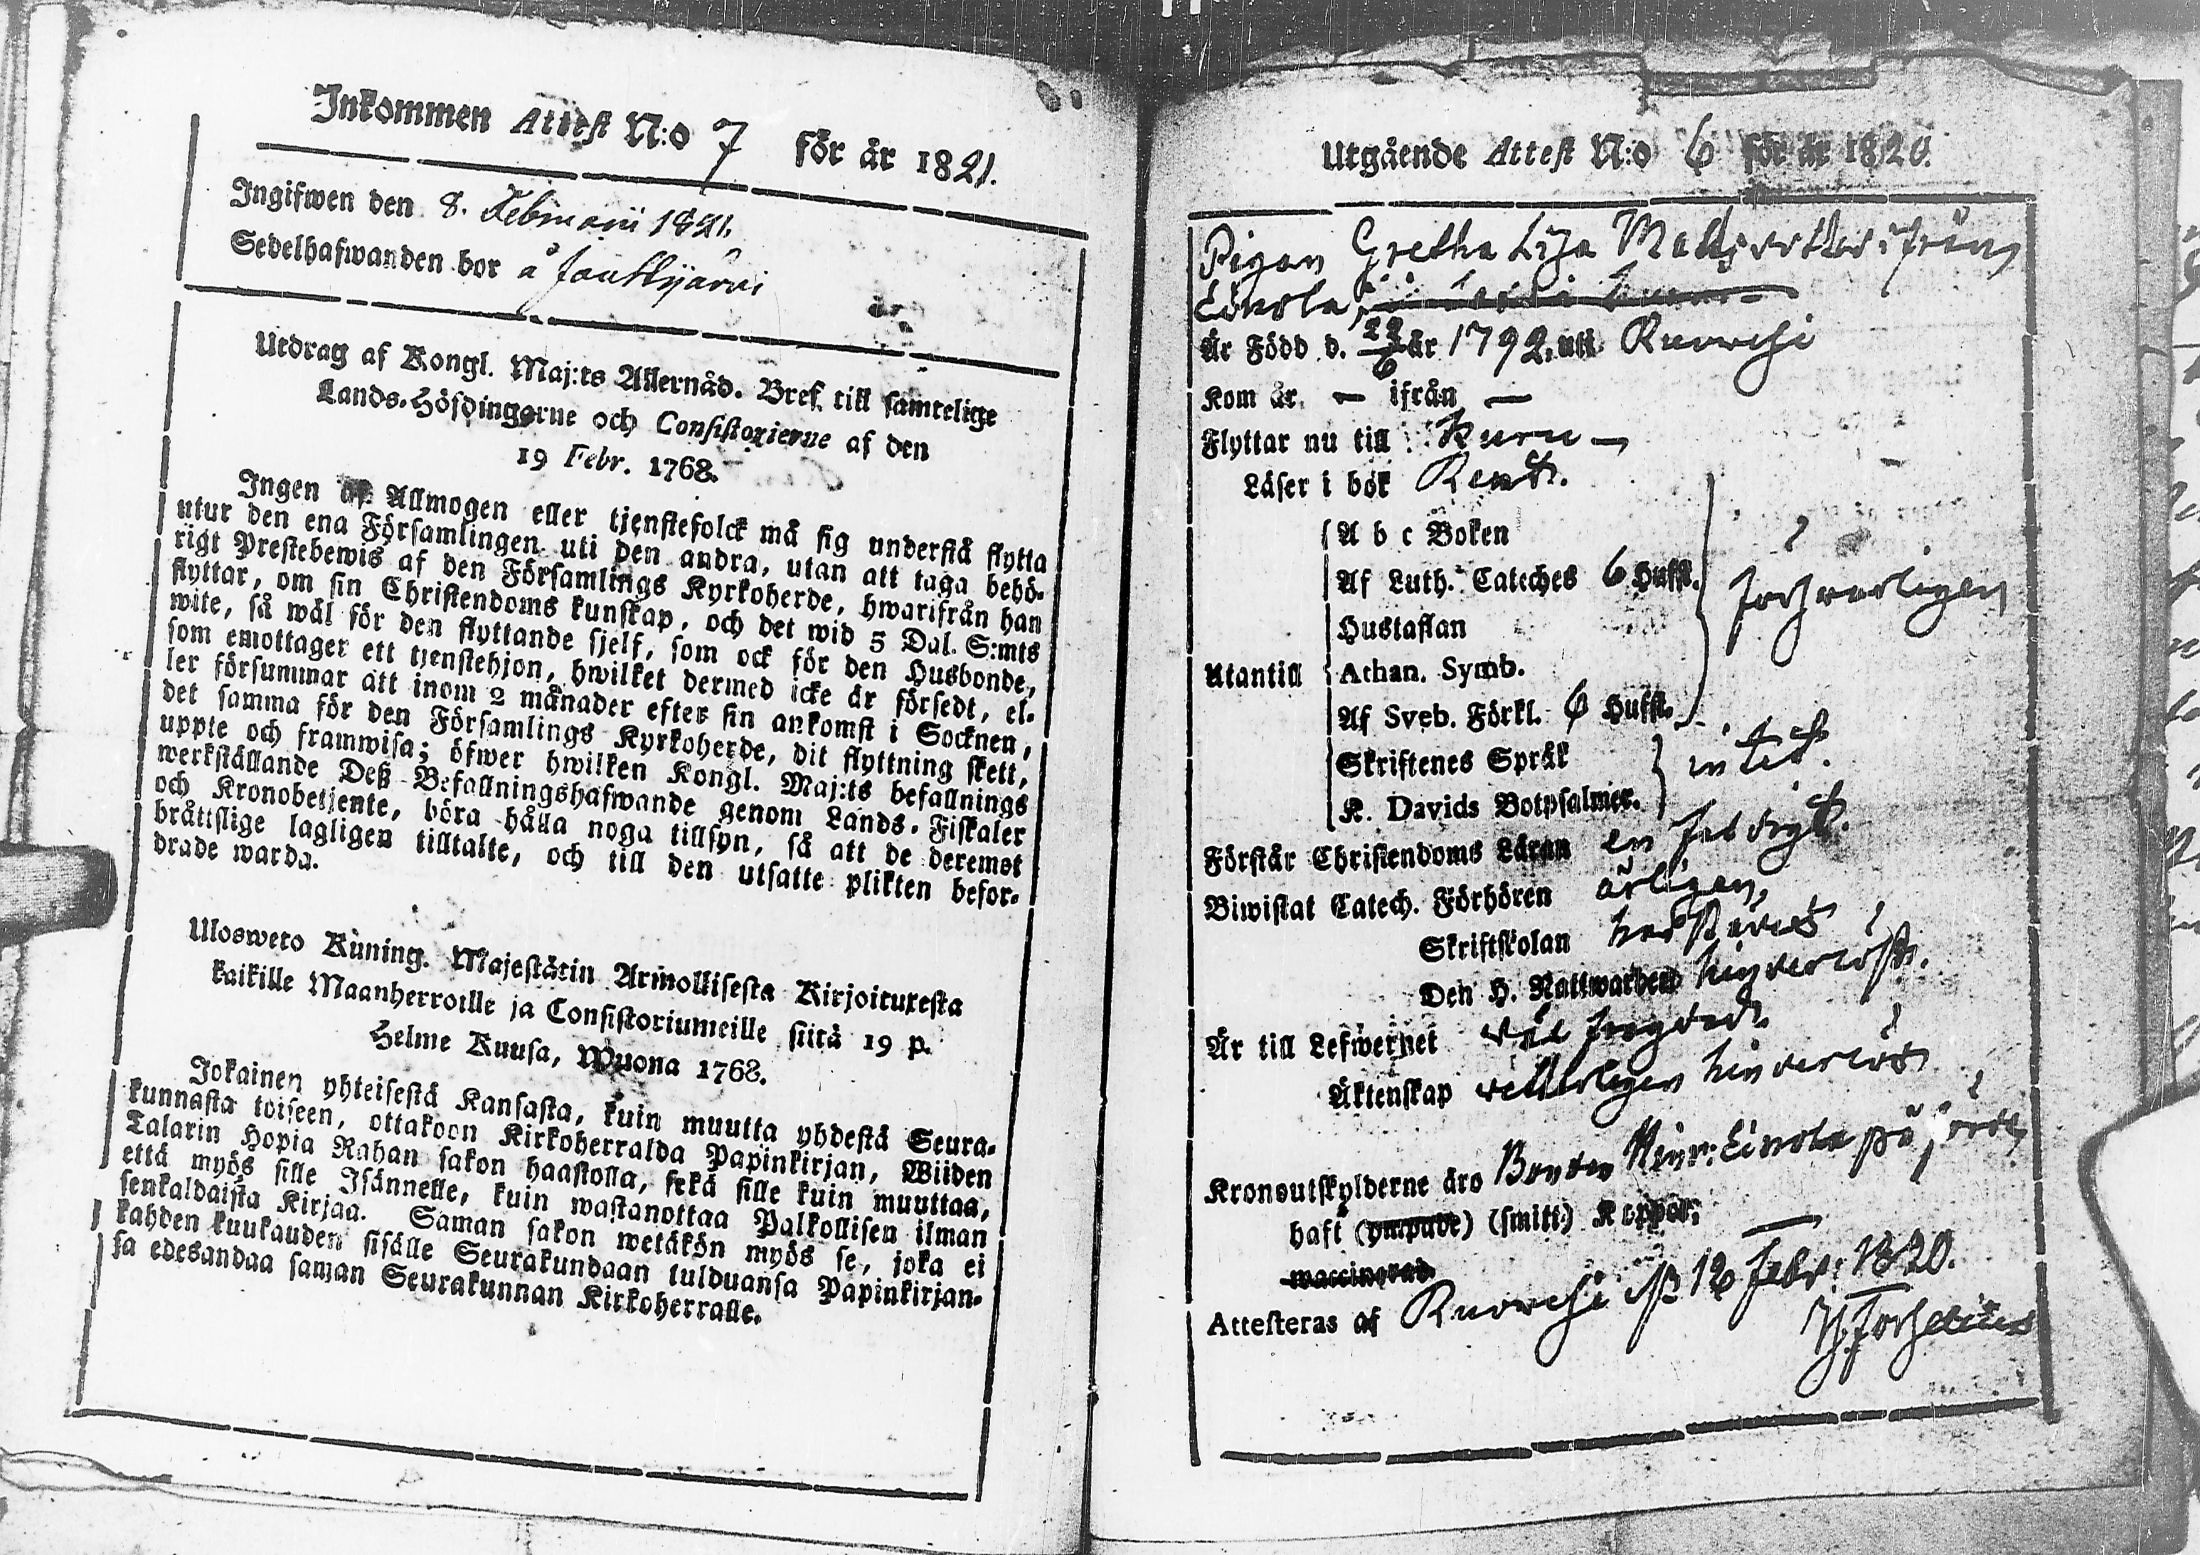 Inkommen Attest N:o 7 för år 1821.
Ingifwen den 8. Februarii 1821.
Sedelhafwanden bor å Jouttijärvi
Utdrag af Kongl. Maj:ts Allernåd. Bref till samtelige
Lands-Höfdingarne och Consistorierne af den
19 Febr. 1768.
Ingen af Allmogen eller tjenstefolck må sig understå flytta
utur den ena Församlingen uti den andra, utan att taga behö-
rigt Prestebewis af den Församlings Kyrkoherde, hwarifrån han
flyttar, om sin Christendoms kunskap, och det wid 5 Dal. S:mts
wite, så wäl för den flyttande sjelf, som ock för den Husbonde,
som emottager ett tjenstehjon, hwilket dermed icke är försedt, el-
ler försummar att inom 2 månader efter sin ankomst i Socknen,
det samma för den Församlings Kyrkoherde, dit flyttning skett,
uppte och framwisa; öfwer hwilken Kongl. Maj:ts befallnings
werkställande Deß Befallningshafwande genom Lands-Fiskaler
och Kronobetjente, böra hålla noga tillsyn, så att de deremot
bråttslige lagligen tilltalte, och till den utsatte plikten befor-
drade warda.
Ulosweto Kuning. Majestätin Armollisesta Kirjoituresta
kaikille Maanherroille ja Consistoriumeille siitä 19 p.
Helme Kuusa, Wuona 1768.
Jokainen yhteisestä Kansasta, kuin muutta yhdestä Seura-
kunnasta toiseen, ottakoon Kirkoherralda Papinkirjan, Wiiden
Talarin Hopia Rahan sakon haastolla, sekä sille kuin muuttaa,
että myös sille Isännelle, kuin wastanottaa Palkollisen ilman
senkaldaista Kirjaa. Saman sakon wetäkön myös se, joka ei
kahden kuukauden sisälle Seurakundaan tulduansa Papinkirjan-
sa edesandaa saman Seurakunnan Kirkoherralle.
Utgående Attest N:o 6 för år 1820.
Pigan Gretha Lisa Mattsdotter ifrån
Einola
Är Född d. 22/6 år 1792, uti Ruovesi
Kom år — ifrån —
Flyttar nu till Kuru —
Läser i bok Rent.
A b c Boken
Af Luth. Cateches 6 Hufst.
försvarligen
Hustaflan
Utantill Athan. Symb.
Af Sveb. Förkl. 6 Hufst.
Skriftenes Språk
intet.
K. Davids Botpsalmer.
Förstår Christendoms Läran enfaldigt.
Biwistat Catech. Förhören årligen,
Skriftskolan
Den H. Nattwarden
Är till Lefwernet väl frägdad.
Äktenskap vetterligen hinderlös
Kronoutskylderne äro Bonden Henr: Einola på förd,
haft (ympade) (smitt.) Koppor,
waccinerad.
Attesteras af Ruovesi d. 12 Febr: 1820.